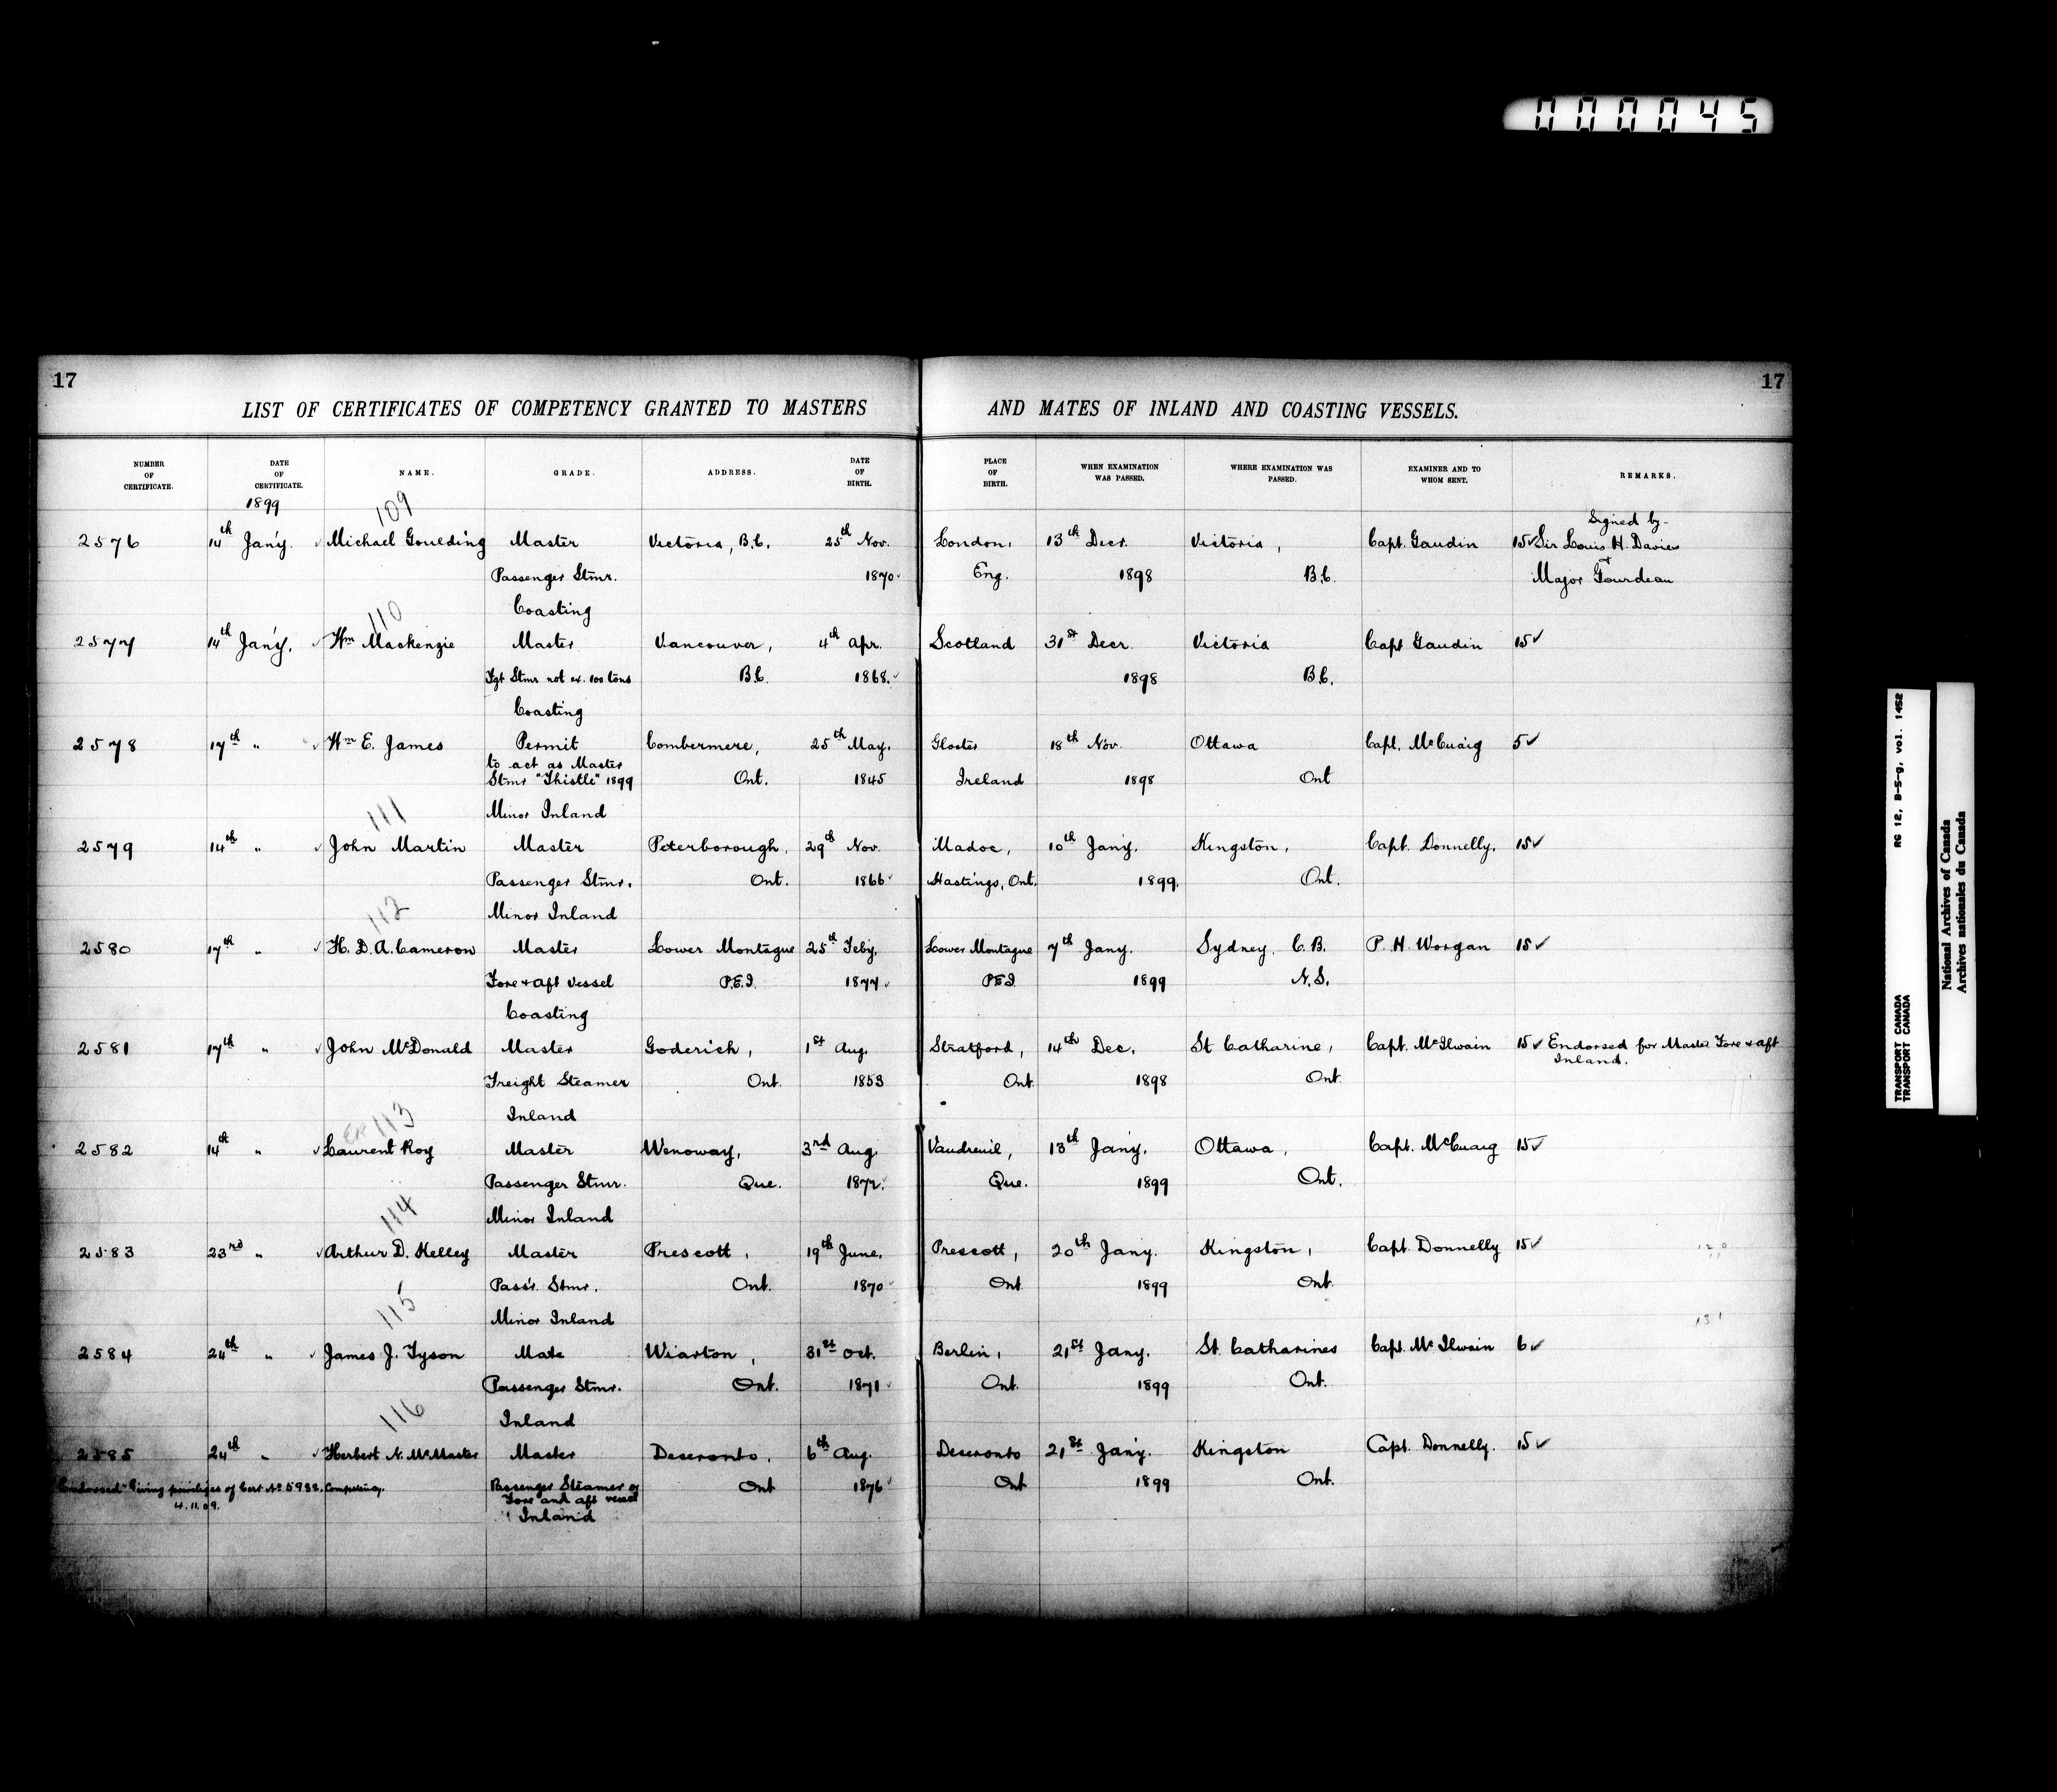 000045
17
17
LIST OF CERTIFICATES OF COMPETENCY GRANTED TO MASTERS AND MATES OF INLAND AND COASTING VESSELS.
NUMBER OF CERTIFICATE. DATE OF CERTIFICATE. NAME. GRADE. ADDRESS. DATE OF BIRTH. PLACE OF BIRTH. WHEN EXAMINATION WAS PASSED. WHERE EXAMINATION WAS PASSED. EXAMINER AND TO WHOM SENT. REMARKS.
1899
109
Signed by-
2576 14th Jan'y. ✓ Michael Goulding Master Victoria, B.C. 25th Nov. London, 13th Decr. Victoria, Capt. Gaudin 15✓ Sir Louis H. Davies
Passenger Stmr. 1870 Eng. 1898 B.C. + Major Gourdeau
Coasting
110
2577 14th Jan'y. ✓ Wm Mackenzie Master Vancouver, 4th Apr. Scotland 31st Decr. Victoria Capt Gaudin 15✓
Fgt Stmr not ex. 100 tons B.C. 1868. 1898 B.C.
Coasting
2578 17th " ✓ Wm E. James Permit Combermere, 25th May. Gloster 18th Nov. Ottawa Capt. McCuaig 5✓
to act as Master
Stmr "Thistle" 1899 Ont. 1845 Ireland 1898 Ont
Minor Inland
111
2579 14th " ✓ John Martin Master Peterborough, 29th Nov. Madoc, 10th Jan'y. Kingston, Capt. Donnelly. 15✓
Passenger Stmr. Ont. 1866 Hastings, Ont. 1899. Ont.
Minor Inland
112
2580 17th " ✓ H. D. A. Cameron Master Lower Montague 25th Feby. Lower Montague 7th Jany. Sydney, C.B. P. H. Worgan 15✓
Fore & aft vessel P.E.I. 1877 P.E.I 1899 N.S.
Coasting
2581 17th " ✓ John McDonald Master Goderich, 1st Aug. Stratford, 14th Dec. St Catharine, Capt. McIlwain 15✓ Endorsed for Master Fore & aft
Inland.
Freight Steamer Ont. 1853 Ont. 1898 Ont.
Inland
113
2582 14th " ✓ Laurent Roy Master Wenoway, 3rd Aug. Vaudreuil, 13th Jan'y. Ottawa, Capt. McCuaig 15✓
Passenger Stmr. Que. 1872. Que. 1899 Ont.
Minor Inland
114
2583 23rd " ✓ Arthur D. Kelley Master Prescott, 19th June. Prescott, 20th Jany. Kingston, Capt. Donnelly 15✓
Pass'r. Stmr. Ont. 1870 Ont 1899 Ont.
Minor Inland
115
2584 24th " ✓ James J. Tyson Mate Wiarton, 31st Oct. Berlin, 21st Jany. St. Catharines Capt. McIlwain 6✓
Passenger Stmr. Ont. 1871 Ont. 1899 Ont.
Inland
116
2585 24th " ✓ Herbert N. McMaster Master Deseronto, 6th Aug. Deseronto 21st Jan'y. Kingston Capt. Donnelly. 15✓
"Endorsed" Giving privileges of Cert. No 5982. Competency. Passenger Steamer or Ont 1876 Ont 1899 Ont.
4.11.09. Fore and aft vessel
Inland
RG 12, B-5-g, vol. 1452
TRANSPORT CANADA
TRANSPORT CANADA
National Archives of Canada
Archives nationales du Canada